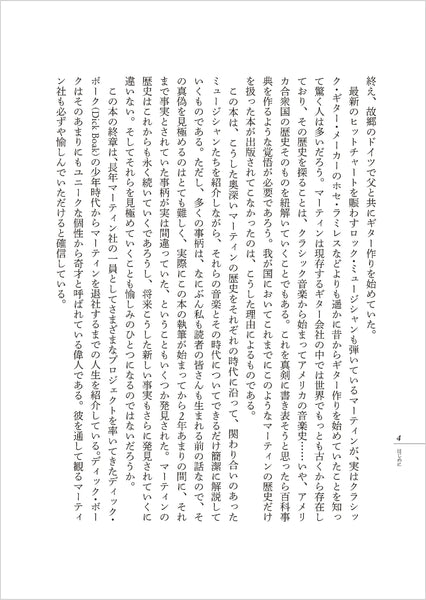 終え、故郷のドイツで父と共にギター作りを始めていた。
最新のヒットチャートを賑わすロック・ミュージシャンも弾いているマーティンが、実はクラシッ
ク・ギター・メーカーのホセ・ラミレスなどよりも遥かに昔からギター作りを始めていたことを知っ
て驚く人は多いだろう。マーティンは現存するギター会社の中では世界でもっとも古くから存在し
ており、その歴史を探ることは、クラシック音楽から始まってアメリカの音楽史……いや、アメリ
カ合衆国の歴史そのものを紐解いていくことでもある。これを真剣に書き表そうと思ったら百科事
典を作るような覚悟が必要であろう。我が国においてこれまでにこのようなマーティンの歴史だけ
を扱った本が出版されてこなかったのは、こうした理由によるものである。
この本は、こうした奥深いマーティンの歴史をそれぞれの時代に沿って、関わり合いのあった
ミュージシャンたちを紹介しながら、それらの音楽とその時代についてできるだけ簡潔に解説して
いくものである。ただし、多くの事柄は、なにぶん私も読者の皆さんも生まれる前の話なので、そ
の真偽を見極めるのはとても難しく、実際にこの本の執筆が始まってから2年あまりの間に、それ
まで事実とされていた事柄が実は間違っていた、ということもいくつか発見された。マーティンの
歴史はこれからも永く続いていくであろうし、将来こうした新しい事実もさらに発見されていくに
違いない。そしてそれらを見極めていくことも愉しみのひとつになるのではないだろうか。
この本の終章は、長年マーティン社の一員としてさまざまなプロジェクトを率いてきたディック・
ボーク(Dick Boak)の少年時代からマーティンを退社するまでの人生を紹介している。ディック・ボー
クはそのあまりにもユニークな個性から奇才と呼ばれている偉人である。彼を通して観るマーティ
ン社も必ずや愉しんでいただけると確信している。
4
はじめに